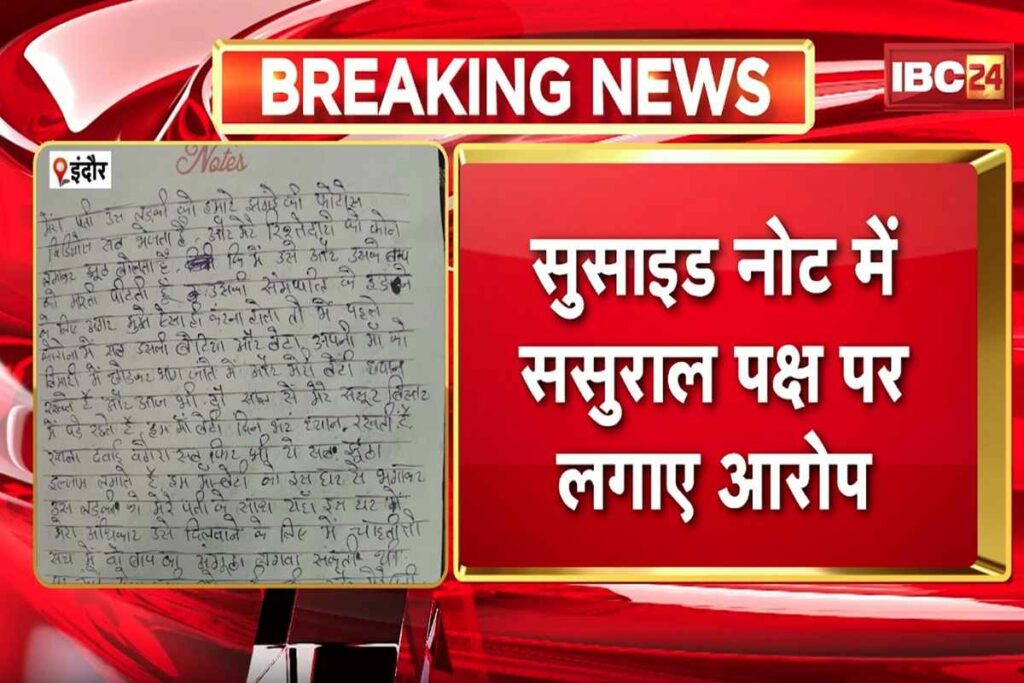 BREAKING NEWS
IBC24
इंदौर
Notes
मेरा पती उस लडकी को हमारे झगडे की फोटोस
विडियोस सब भेजता है और मेरे रिश्तेदारो को फोन
लगाकर झूठ बोलता है कि में उसे और उसके बाप
को मारती पीटती हूँ उसकी सेमपाति के हडपने
के लिए अगर मुझे ऐसा ही करना होता तो में पहले
कोरोना में सब इसकी बेटिया और बेटा अपनी माँ को
बिमारी में छोडकर भाग जाते में और मेरी बेटी ध्यान
रखते है और आज भी दो साल से मेरे ससूर बिस्तर
में पडे रहते है, हम माँ बेटी दिन भर ध्यान रखती है
खाना दवाई वगैरा सब फिर भी ये सब झूठा
इल्जाम लगाते है हम माँ-बेटी को इस घर से भगाकर
इस लडकी को मेरे पती के साथ यहाँ इस घर में
मेरा अधिकार उसे दिलवाने के लिए में चाहती तो
सच में वो बाप का अंगूठा लगवा सकती थी
सुसाइड नोट में
ससुराल पक्ष पर
लगाए आरोप